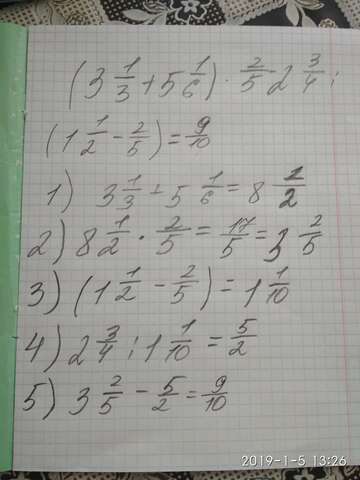 (3 1/3 + 5 1/6) · 2/5 - 2 3/4 :
(1 1/2 - 2/5) = 9/10
1) 3 1/3 + 5 1/6 = 8 1/2
2) 8 1/2 · 2/5 = 17/5 = 3 2/5
3) (1 1/2 - 2/5) = 1 1/10
4) 2 3/4 : 1 1/10 = 5/2
5) 3 2/5 - 5/2 = 9/10
2019-1-5 13:26